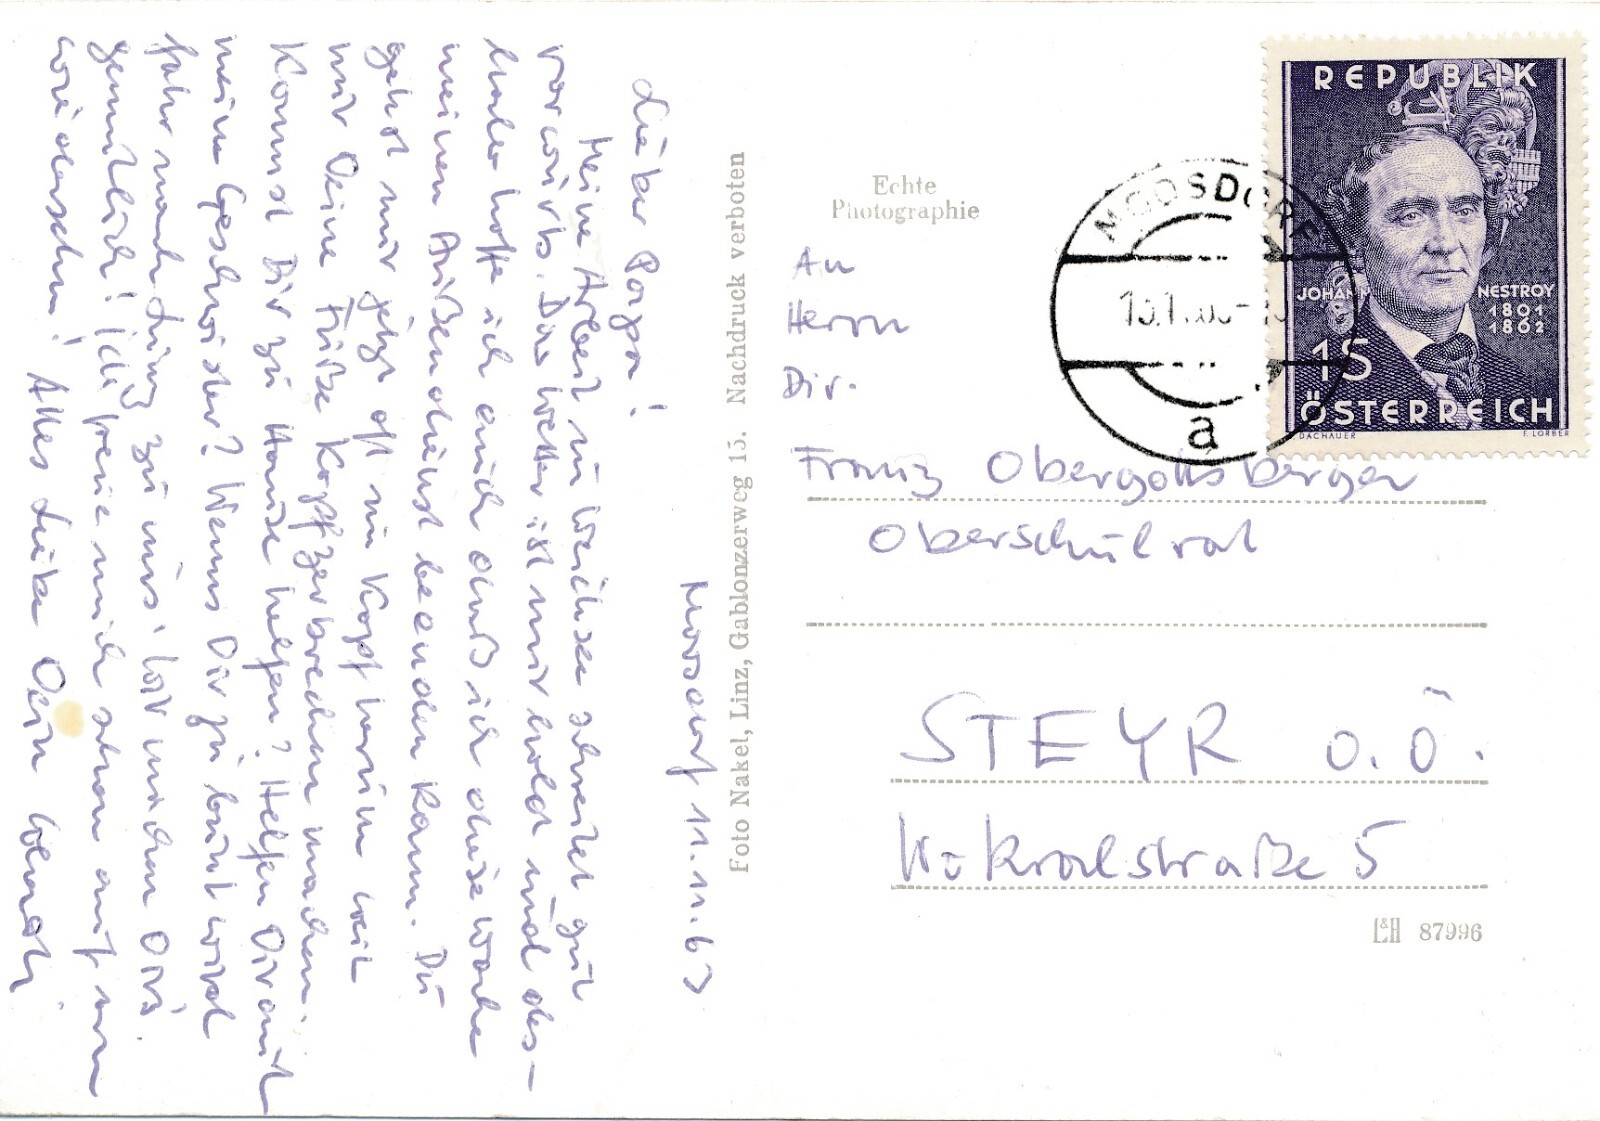 Moosdorf 11.11.63
Lieber Papa!
Meine Arbeit in Weichsee schreitet gut
vorwärts. Das Wetter ist mir hold und des-
halb hoffe ich auch daß ich diese Woche
meinen Außendienst beenden kann. Du
gehst mir jetzt oft im Kopf herum weil
mir Deine Füße Kopfzerbrechen machen.
Kannst Dir zu Hause helfen? Helfen Dir auch
meine Geschwister? Wenns Dir zu bunt wird
fahr nach Linz zu uns! Wir machen Dirs
gemütlich! Ich freue mich schon auf ein
wiedersehn! Alles Liebe Dein
Foto Nakel, Linz, Gablonzerweg 15. Nachdruck verboten
Echte
Photographie
An
Herrn
Dir.
Franz Obergottsberger
Oberschulrat
STEYR O.Ö.
Wokralstraße 5
L&H 87996
MOOSDORF
a
REPUBLIK
JOHANN NESTROY
1801
1862
1S
ÖSTERREICH
DACHAUER F. LORBER